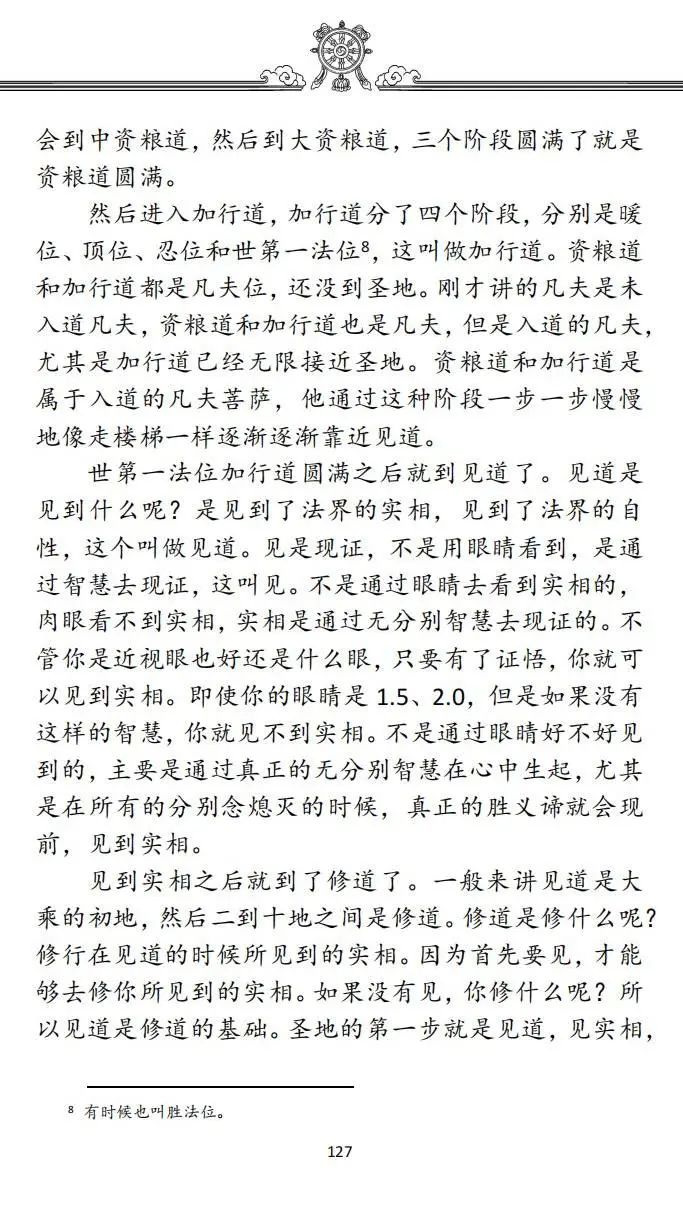 会到中资粮道，然后到大资粮道，三个阶段圆满了就是
资粮道圆满。
然后进入加行道，加行道分了四个阶段，分别是暖
位、顶位、忍位和世第一法位⁸，这叫做加行道。资粮道
和加行道都是凡夫位，还没到圣地。刚才讲的凡夫是未
入道凡夫，资粮道和加行道也是凡夫，但是入道的凡夫，
尤其是加行道已经无限接近圣地。资粮道和加行道是
属于入道的凡夫菩萨，他通过这种阶段一步一步慢慢
地像走楼梯一样逐渐逐渐靠近见道。
世第一法位加行道圆满之后就到见道了。见道是
见到什么呢？是见到了法界的实相，见到了法界的自
性，这个叫做见道。见是现证，不是用眼睛看到，是通
过智慧去现证，这叫见。不是通过眼睛去看到实相的，
肉眼看不到实相，实相是通过无分别智慧去现证的。不
管你是近视眼也好还是什么眼，只要有了证悟，你就可
以见到实相。即使你的眼睛是 1.5、2.0，但是如果没有
这样的智慧，你就见不到实相。不是通过眼睛好不好见
到的，主要是通过真正的无分别智慧在心中生起，尤其
是在所有的分别念熄灭的时候，真正的胜义谛就会现
前，见到实相。
见到实相之后就到了修道了。一般来讲见道是大
乘的初地，然后二到十地之间是修道。修道是修什么呢？
修行在见道的时候所见到的实相。因为首先要见，才能
够去修你所见到的实相。如果没有见，你修什么呢？所
以见道是修道的基础。圣地的第一步就是见道，见实相，
⁸ 有时候也叫胜法位。
127